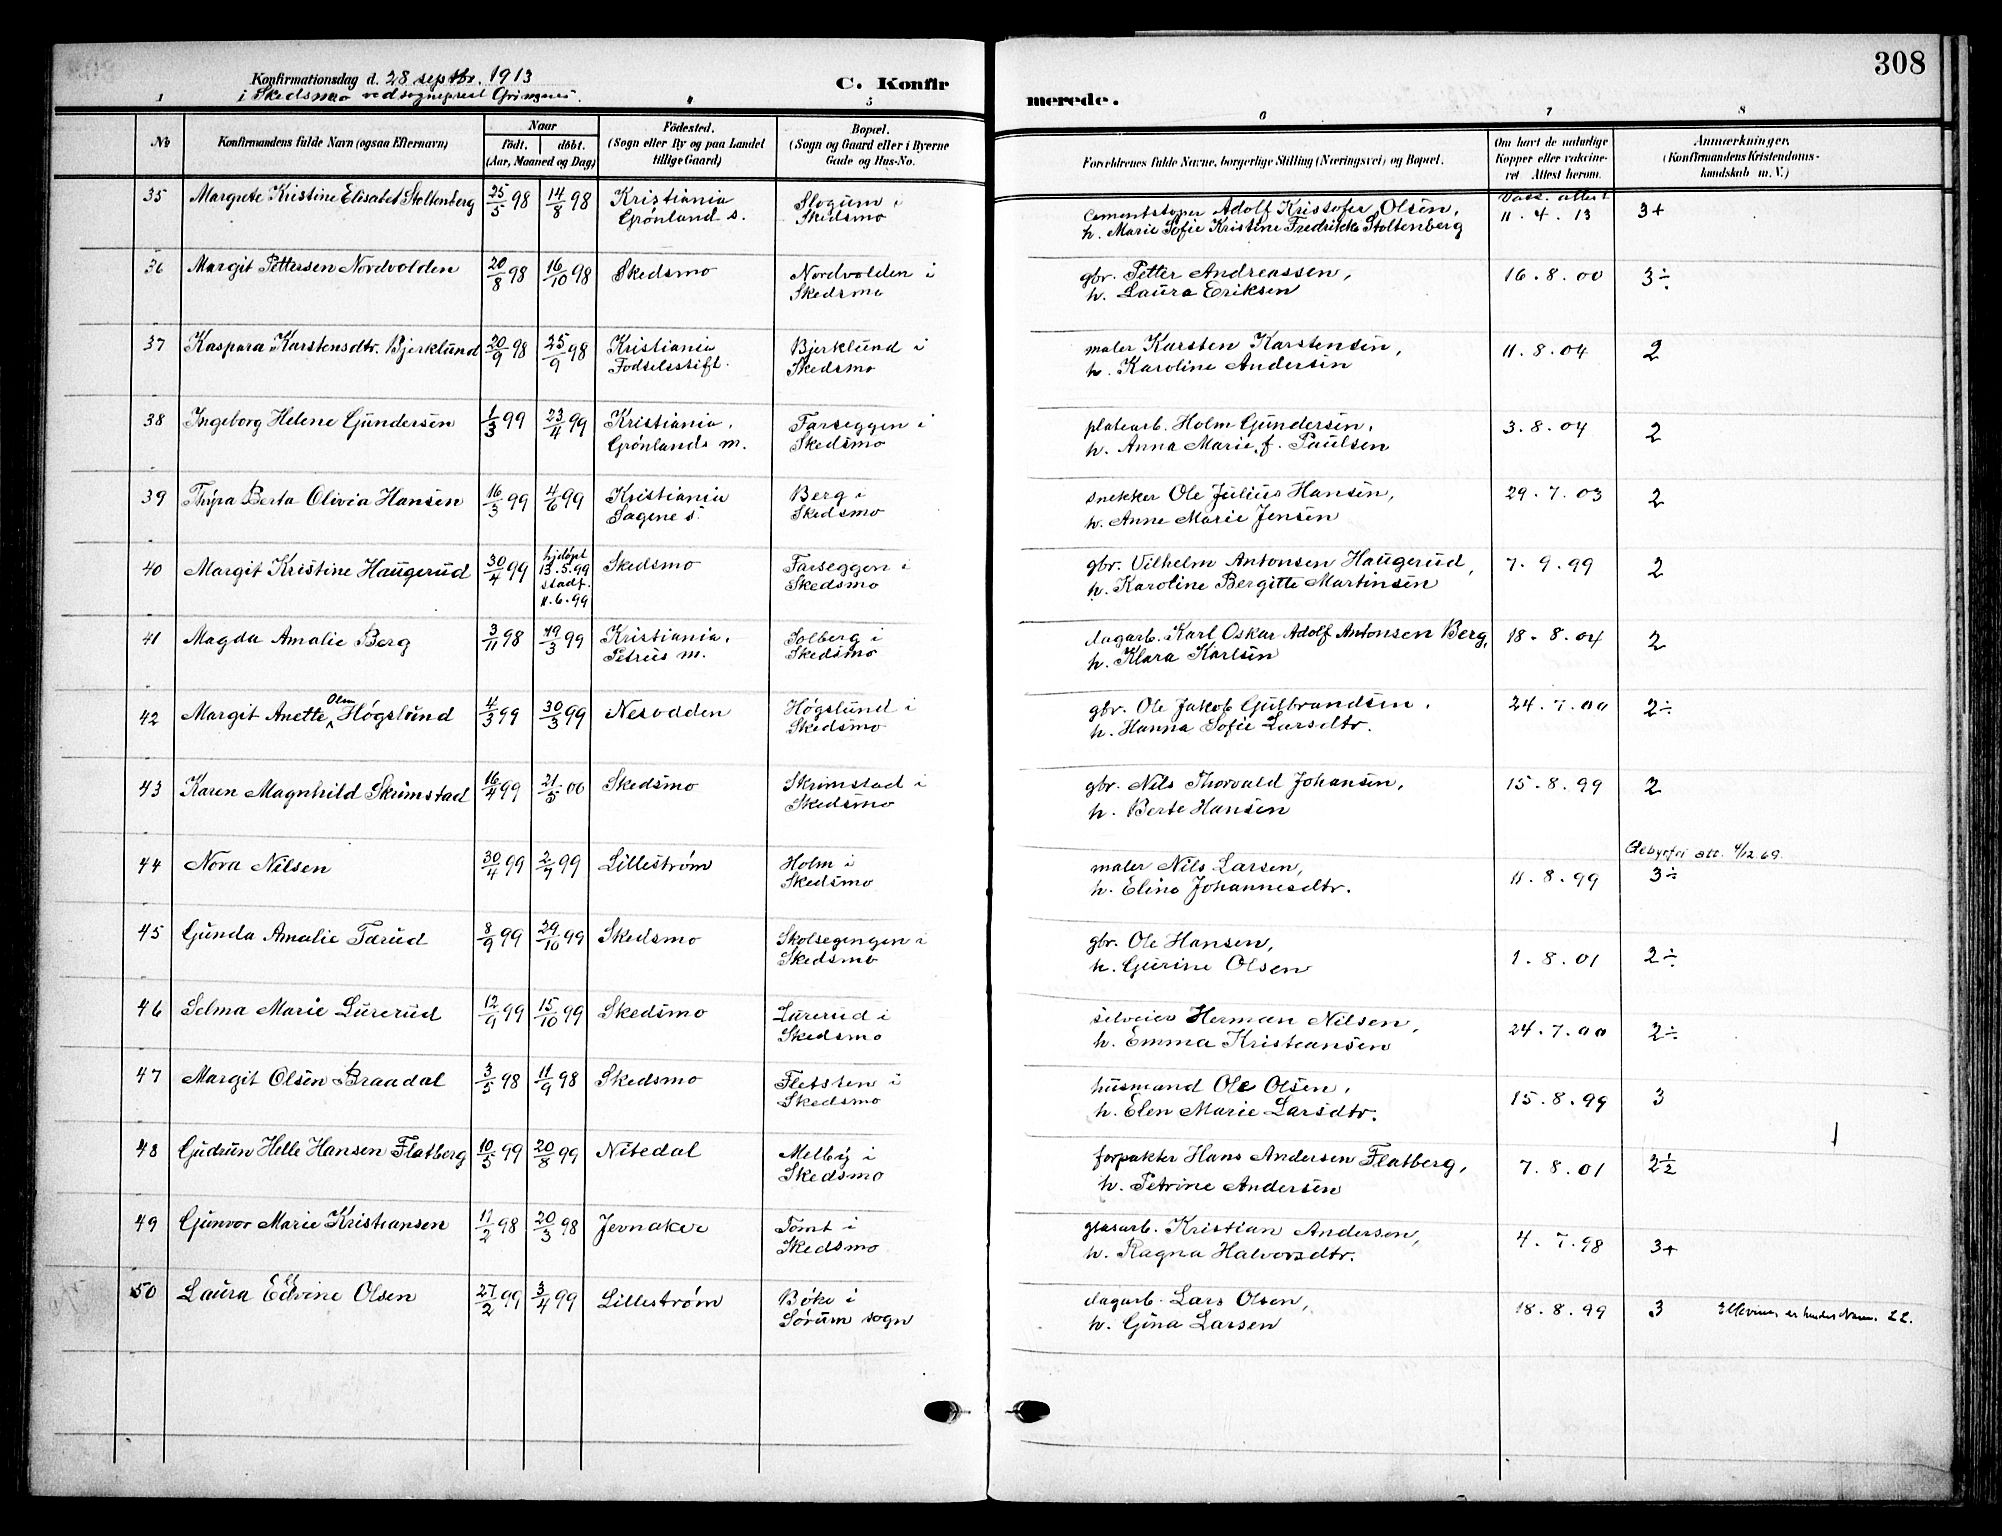 308
Konfirmationsdag d. 28 septbr. 1913
i Skedsmo ved sogneprest Grimnes.
C. Konfirmerede.
1 4 5 6 7 8
No
Konfirmandens fulde Navn (ogsaa Efternavn)
Naar
født. døbt.
(Aar, Maaned og Dag)
Fødested.
(Sogn eller By og paa Landet
tillige Gaard)
Bopæl.
(Sogn og Gaard eller i Byerne
Gade og Hus-No.
Forældrenes fulde Navne, borgerlige Stilling (Næringsvei) og Bopæl.
Om havt de naturlige
Kopper eller vaccine-
ret. Attest herom.
Anmærkninger.
(Konfirmandens Kristendoms-
kundskab m. V.)
35 Margrete Kristine Elisabet Stoltenberg 25/5 98 14/8 98 Kristiania Slogum i cementstøper Adolf Kristofer Olsen, Vacc. attest 11.4.13 3+
Grønland s. Skedsmo h. Marie Sofie Kristine Fredrikke Stoltenberg
36 Margit Pettersen Nordvolden 20/8 98 16/10 98 Skedsmo Nordvolden i gbr. Petter Andreassen, 16.8.00 3÷
Skedsmo h. Laura Eriksen
37 Kaspara Karstensdtr. Bjerklund 20/9 98 25/9 98 Kristiania Bjerklund i maler Karsten Karstensen, 11.8.04 2
Fødselsstift. Skedsmo h. Karoline Andersen
38 Ingeborg Helene Gundersen 1/3 99 23/4 99 Kristiania, Farseggen i platearb. Holm Gundersen, 3.8.04 2
Grønlands m. Skedsmo h. Anna Marie, f. Paulsen
39 Thyra Berta Olivia Hansen 16/3 99 4/6 99 Kristiania Berg i snekker Ole Julius Hansen, 29.7.03 2
Sagene s. Skedsmo h. Anne Marie Jensen
40 Margit Kristine Haugerud 30/4 99 hjdøpt 13.5.99 stadf. 11.6.99 Skedsmo Farseggen i gbr. Vilhelm Antonsen Haugerud, 7.9.99 2
Skedsmo h. Karoline Bergitte Martinsen
41 Magda Amalie Berg 3/11 98 19/3 99 Kristiania, Solberg i dagarb. Karl Oskar Adolf Antonsen Berg, 18.8.04 2
Petrus m. Skedsmo h. Klara Karlsen
42 Margit Anette Olsen Høgslund 4/3 99 30/3 99 Nesodden Høgslund i gbr. Ole Jakob Gulbrandsen, 24.7.00 2÷
Skedsmo h. Hanna Sofie Larsdtr.
43 Karen Magnhild Skrimstad 16/4 99 21/5 00 Skedsmo Skrimstad i gbr. Nils Thorvald Johansen, 15.8.99 2
Skedsmo h. Berte Hansen
44 Nora Nilsen 30/4 99 2/7 99 Lillestrøm Holm i maler Nils Larsen, 11.8.99 Gebyrfri att. 4/12 69. 3÷
Skedsmo h. Eline Johannesdtr.
45 Gunda Amalie Tærud 8/9 99 29/10 99 Skedsmo Skolsegingen i gbr. Ole Hansen, 1.8.01 2÷
Skedsmo h. Gurine Olsen
46 Selma Marie Lurerud 12/9 99 15/10 99 Skedsmo Lurerud i selveier Herman Nilsen, 24.7.00 2÷
Skedsmo h. Emma Kristiansen
47 Margit Olsen Braadal 3/5 98 11/9 98 Skedsmo Fletsten i husmand Ole Olsen, 15.8.99 3
Skedsmo h. Elen Marie Larsdtr.
48 Gudrun Helle Hansen Flatberg 10/5 99 20/8 99 Nitedal Melby i forpakter Hans Andersen Flatberg, 7.8.01 2½
Skedsmo h. Petrine Andersen
49 Gunvor Marie Kristiansen 11/2 98 20/3 98 Jevnaker Tomt i glasarb. Kristian Andersen, 4.7.98 3+
Skedsmo h. Ragna Halvorsdtr.
50 Laura Ellvine Olsen 27/2 99 3/4 99 Lillestrøm Bøke i dagarb. Lars Olsen, 18.8.99 3 Ellevine er hendes Navn. LL.
Sørum sogn h. Gina Larsen